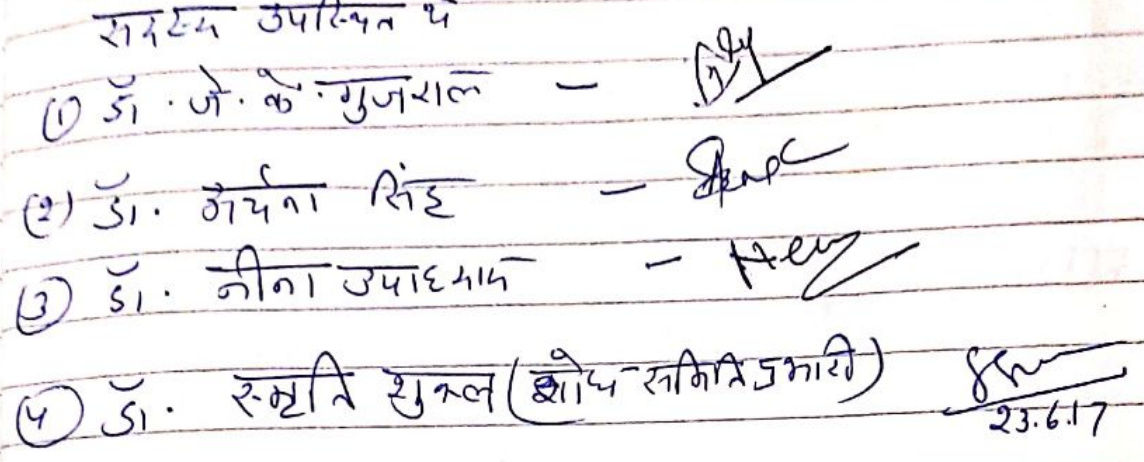 सदस्य उपस्थित थे
(1) डॉ. जे. के. गुजराल –
(2) डॉ. सिंह –
(3) डॉ. नीना उपाध्याय –
(4) डॉ. स्मृति शुक्ल (शोध समिति प्रभारी)
23.6.17